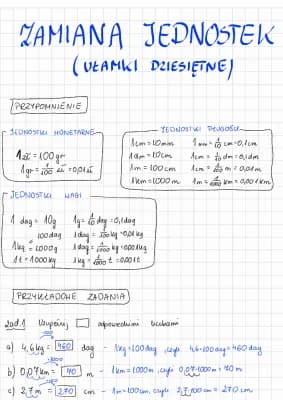 ZAMIANA JEDNOSTEK
(UŁAMKI DZIESIĘTNE)
PRZYPOMNIENIE
JEDNOSTKI MONETARNE
1 zł = 100 gr
1 gr = 1/100 zł = 0,01 zł
JEDNOSTKI DŁUGOŚCI
1cm = 10mm 1mm = 1/10 cm = 0,1cm
1dm = 10cm 1cm = 1/10 dm = 0,1dm
1m = 100cm 1cm = 1/100 m = 0,01m
1km = 1000m 1m = 1/1000 km = 0,001km
JEDNOSTKI WAGI
1 dag = 10g 1g = 1/10 dag = 0,1dag
100dag 1dag = 1/100 kg = 0,01kg
1kg = 1000g 1dag = 1/1000 kg = 0,001kg
1t = 1000kg 1kg = 1/1000 t = 0,001t
PRZYKŁADOWE ZADANIA
Zad.1 Uzupełnij odpowiednimi liczbami
a) 4,6kg = 460 dag - 1kg = 100dag, czyli 4,6·100dag = 460dag
b) 0,07km = 70 m - 1km = 1000m, czyli 0,07·1000m = 70m
c) 2,7m = 270 cm - 1m = 100cm, czyli 2,7·100cm = 270cm